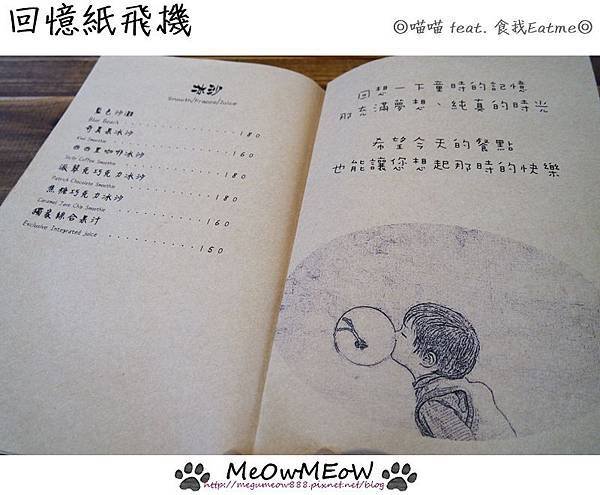 回憶紙飛機
◎喵喵 feat. 食我Eatme◎
冰沙
Smooth/Frappe/Juice
藍色沙灘
Blue Beach 180
奇異果冰沙
Kiwi Smoothie 160
西西里咖啡冰沙
Sicily Coffee Smoothie 180
派翠克巧克力冰沙
Patrick Chocolate Smoothie 180
焦糖巧克力冰沙
Caramel Java Chip Smoothie 160
獨家綜合果汁
Exclusive Integrated Juice 150
回想一下童時的記憶
那充滿夢想、純真的時光
希望今天的餐點
也能讓您想起那時的快樂
MeOwMEoW
http://megumeow888.pixnet.net/blog